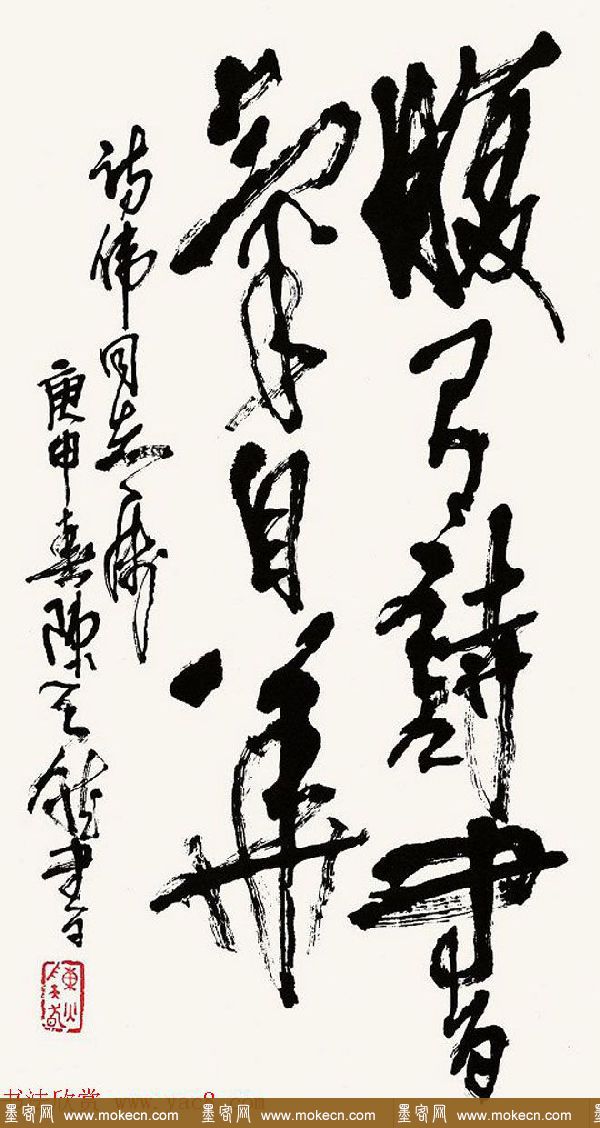 腹有詩書
氣自華
詩偉同志属
庚申春陳天然書
书法欣赏 www.yac8.com
墨客网 www.mokecn.com 墨客网 www.mokecn.com 墨客网 www.mokecn.com